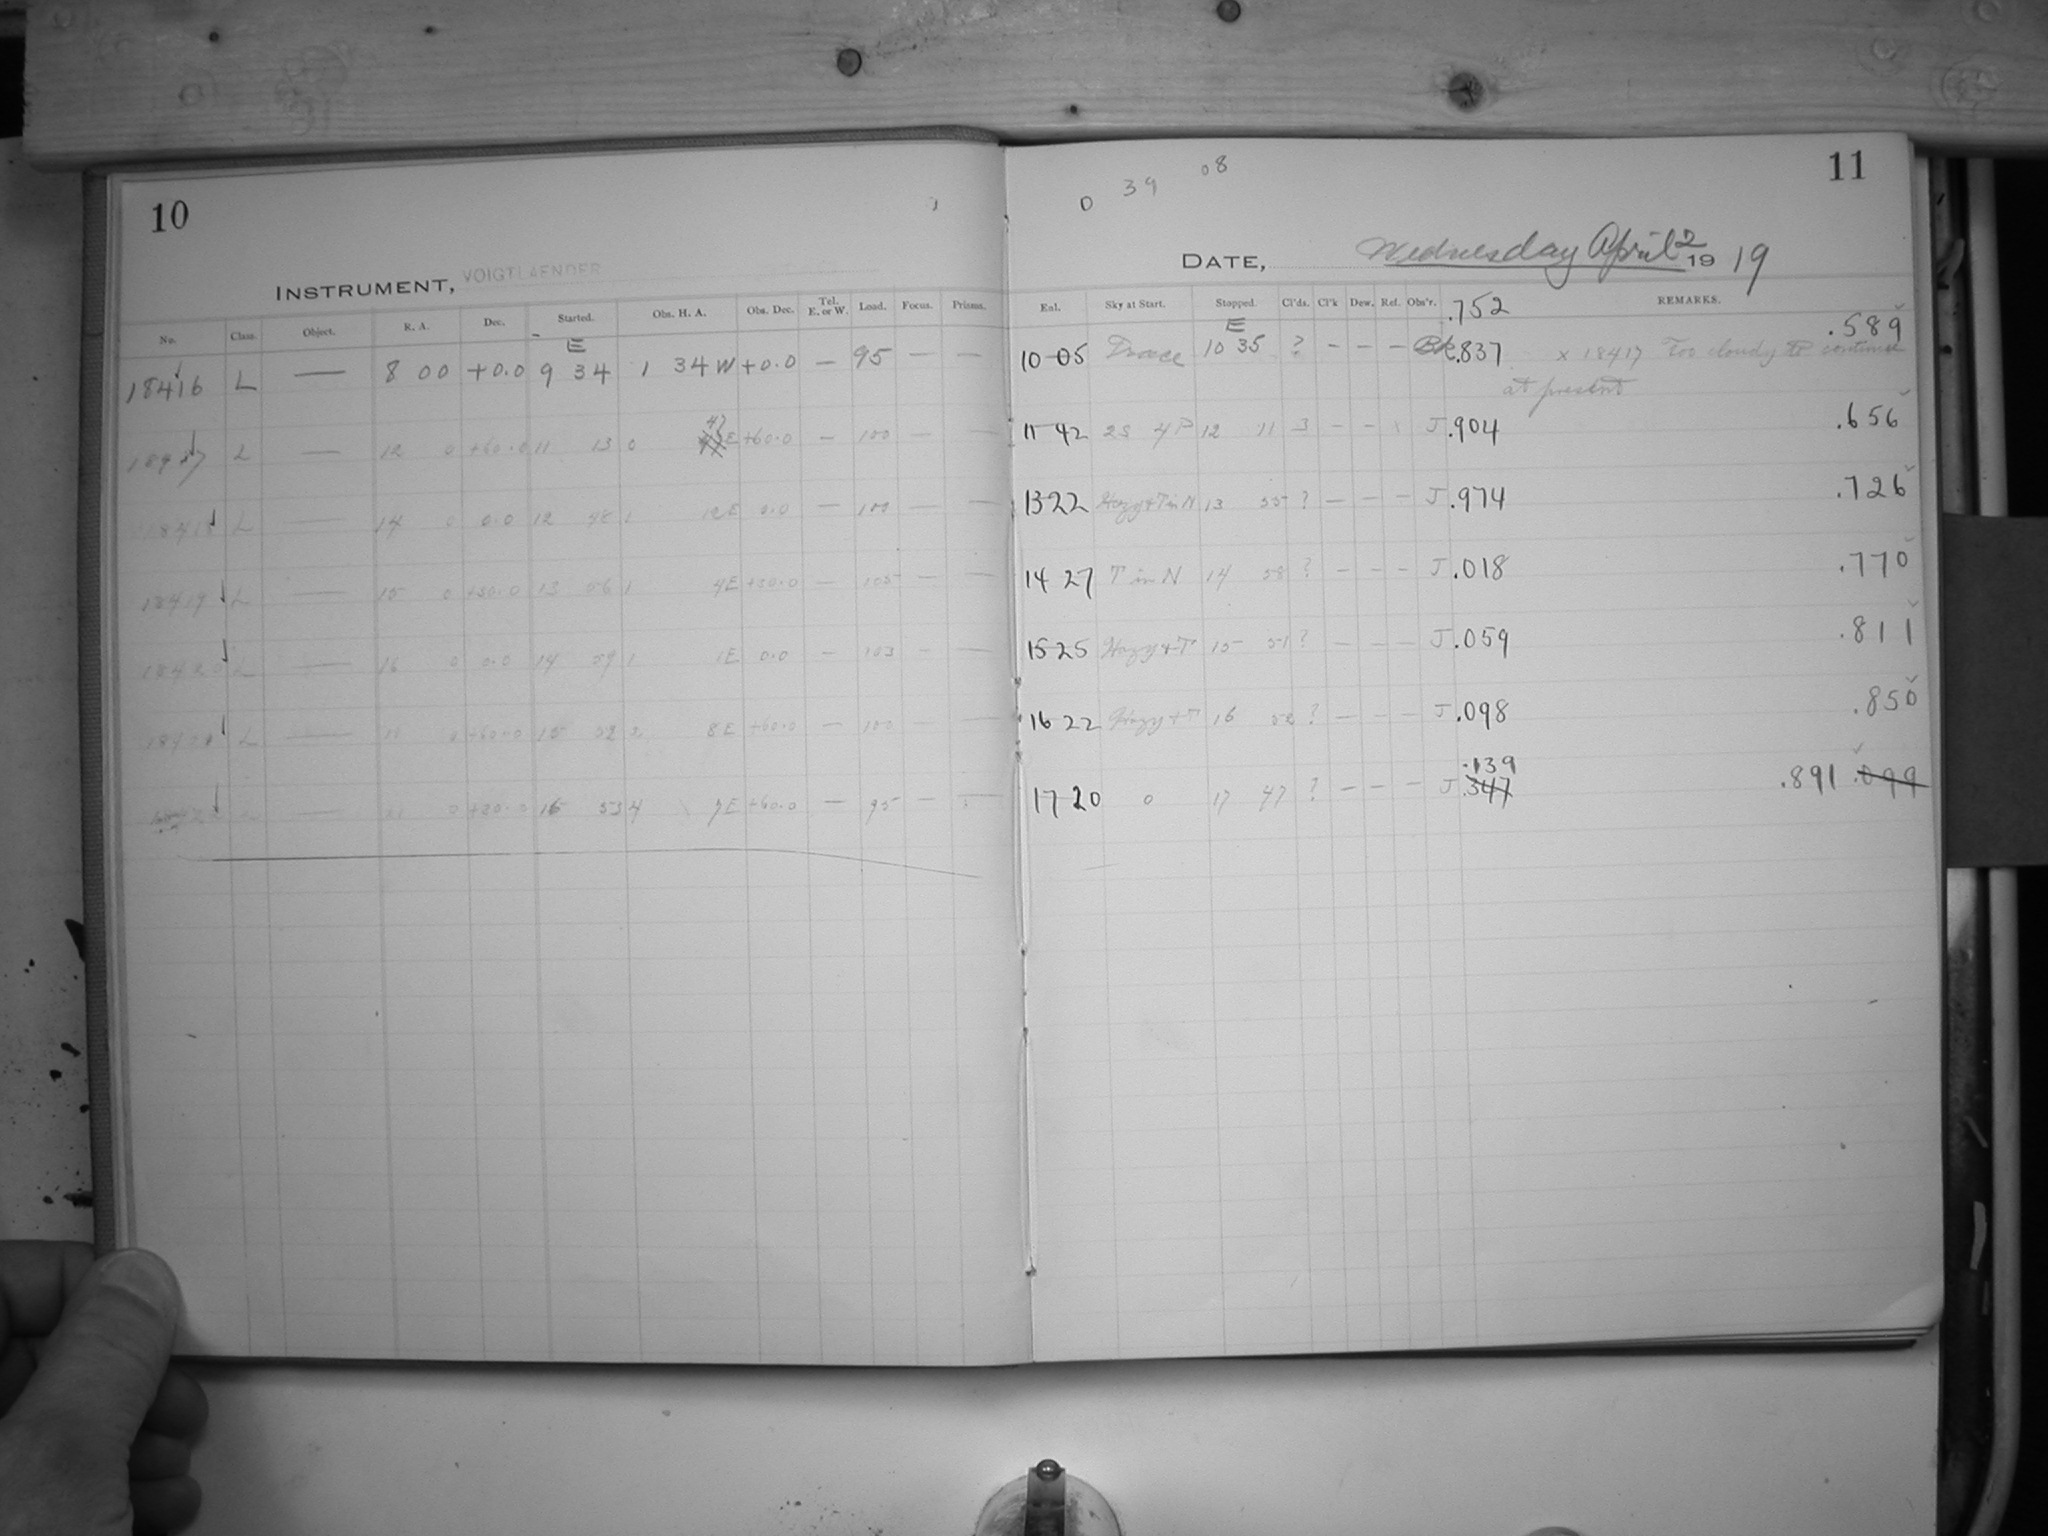 10
INSTRUMENT, VOIGTLAENDER
No. Class. Object. R. A. Dec. Started. Obs. H. A. Obs. Dec. Tel. E. or W. Load. Focus. Prisms.
E
18416 L — 8 00 +0.0 9 34 1 34 W +0.0 — 95 — —
47
L — 12 0 +60.0 11 13 0 E +60.0 — 100 — —
18418 L — 14 0 0.0 12 48 1 12E 0.0 — 100 — —
18419 L — 15 0 +30.0 13 56 1 4E +30.0 — 105 — —
18420 L — 16 0 0.0 14 59 1 1E 0.0 — 103 — —
L — 0 +60.0 15 52 2 8E +60.0 — 100 — —
— 0 16 53 4 7E +60.0 — 95 — —
11
0 39 08
DATE, Wednesday April 2 1919
Enl. Sky at Start. Stopped. Cl'ds. Cl'k Dew. Ref. Obs'r. .752 REMARKS.
E .589
10-05 10 35 ? — — — Bk .837 x 18417 Too cloudy to continue
at present
11-42 2S 4P 12 11 3 — — J .904 .656
13-22 Hazy + T in N 13 55 ? — — — J .974 .726
14 27 T in N 14 58 ? — — — J .018 .770
15-25 Hazy + T 15 51 ? — — J .059 .811
16-22 Hazy + T 16 52 ? — — — J .098 .850
.139
17-20 0 17 47 ? — — — J .347 .891 .099